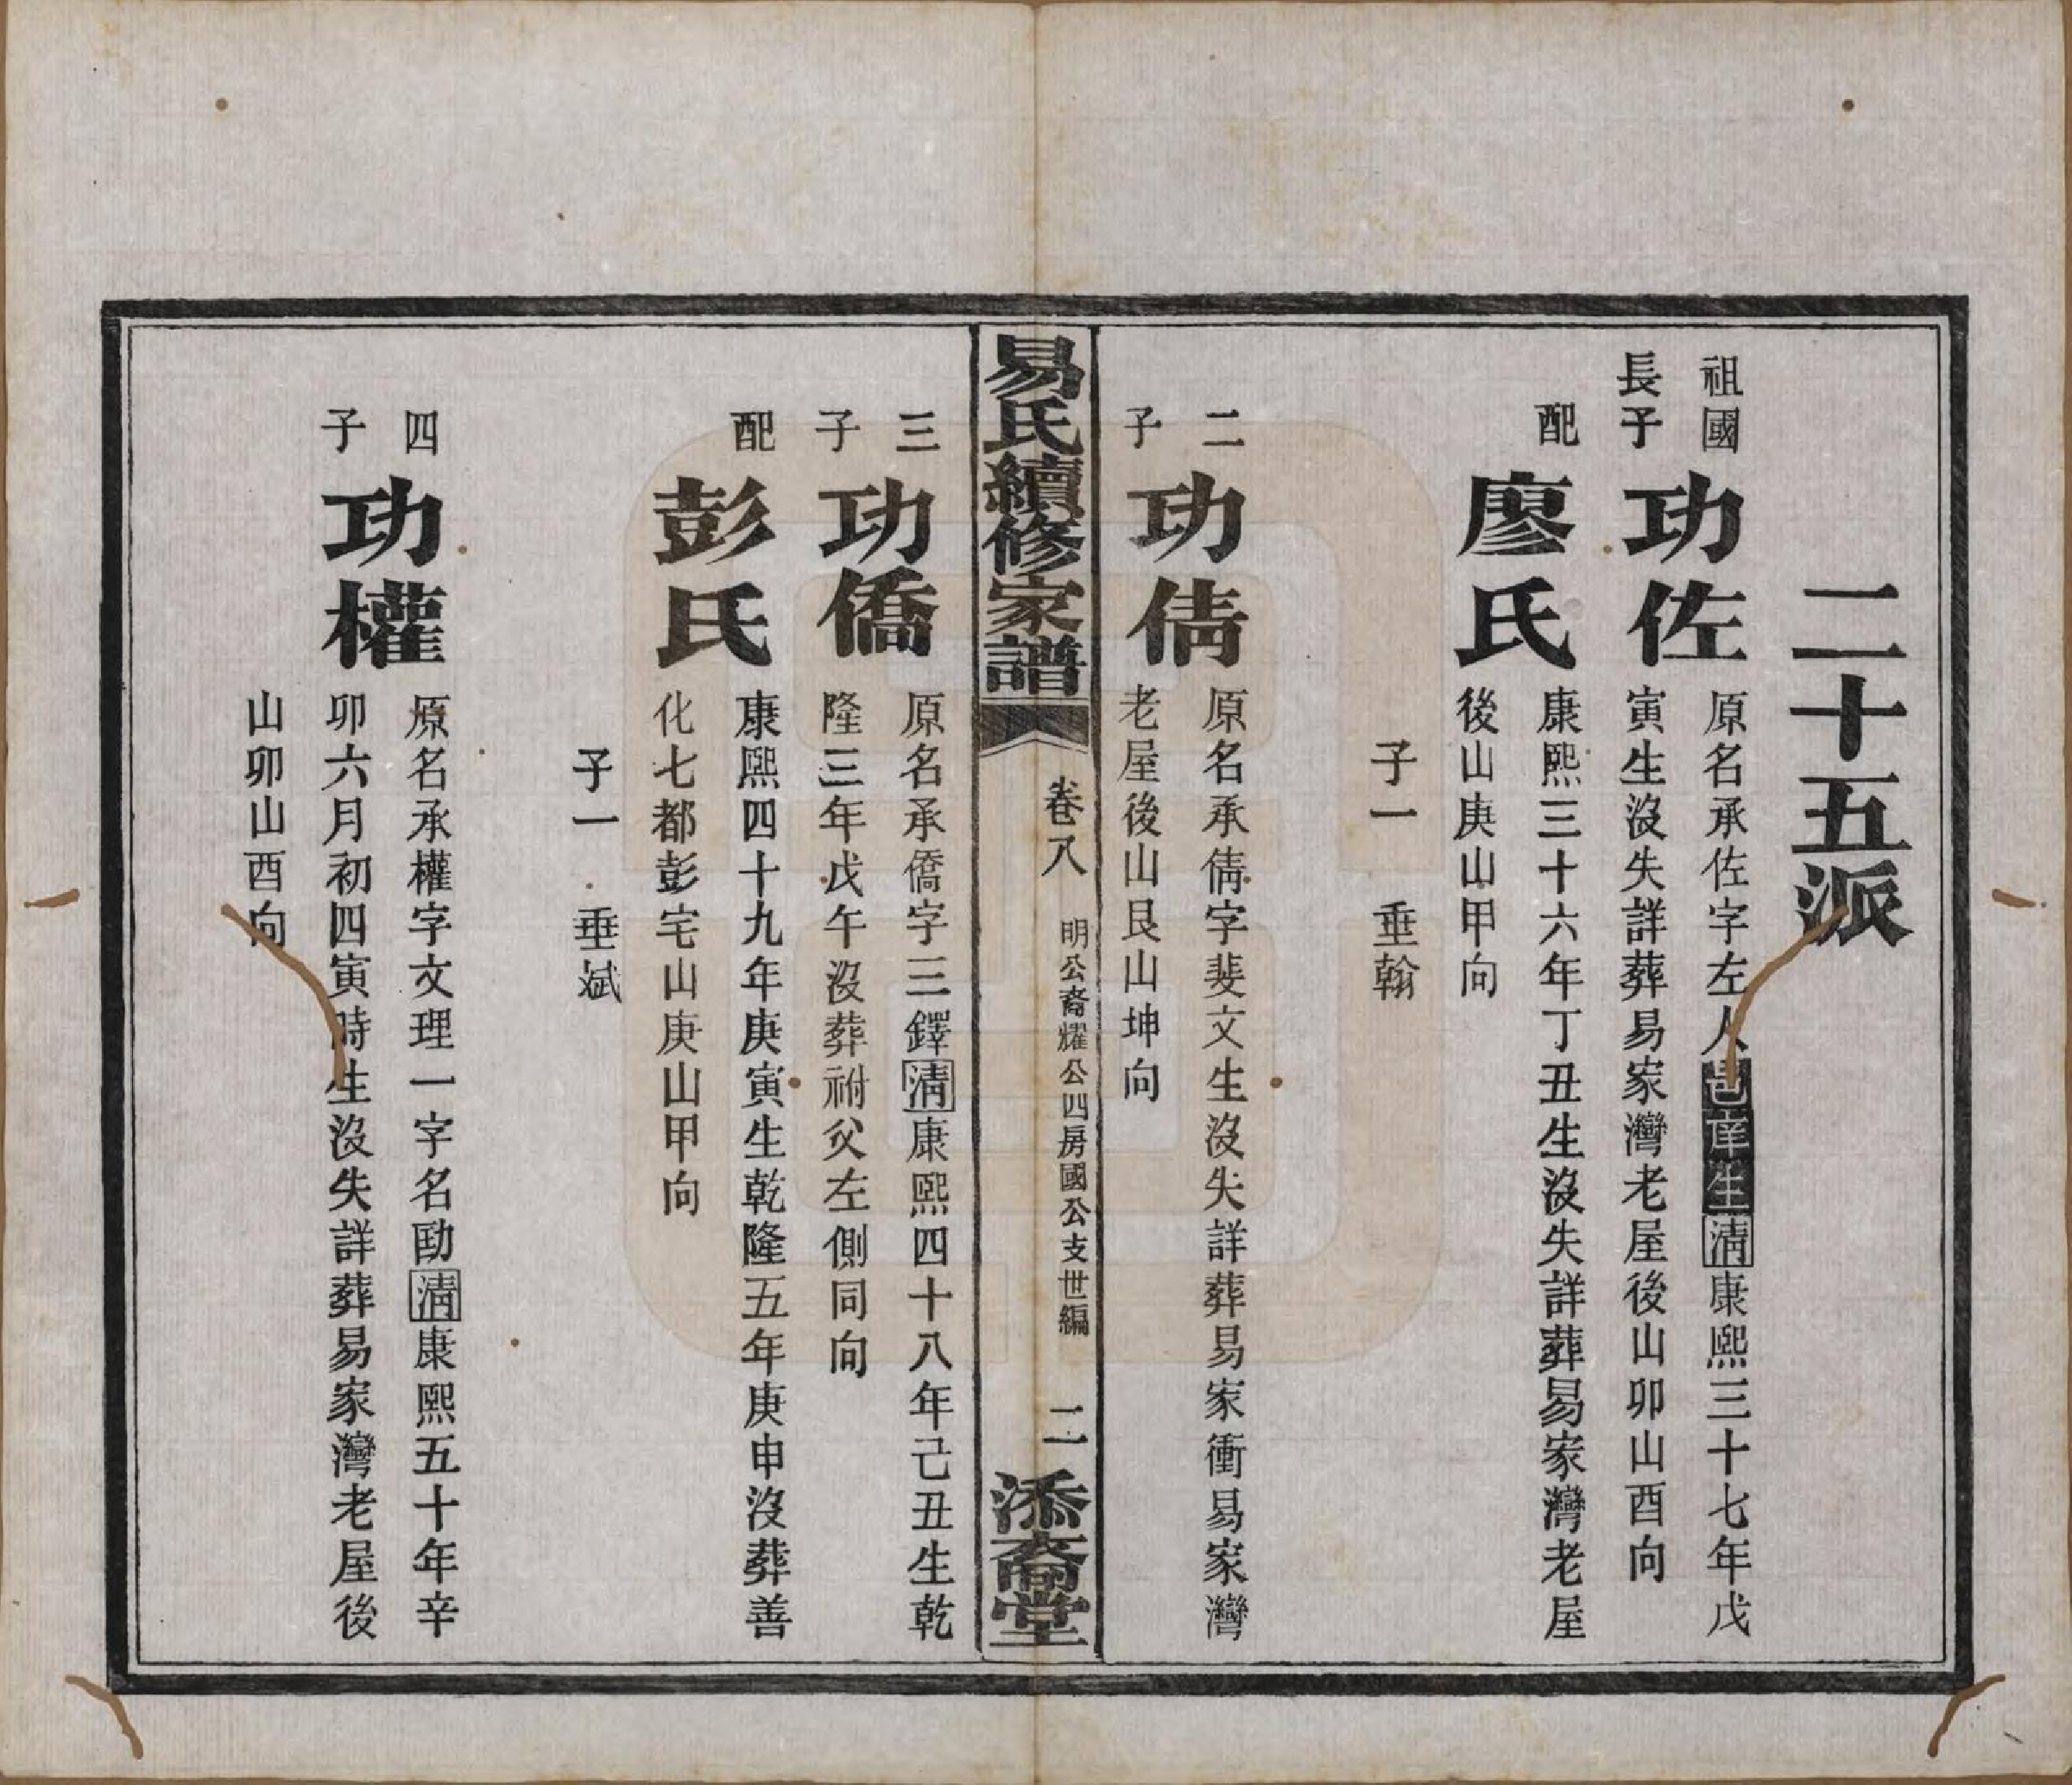 二十五派
祖國
長子
功佐
原名承佐字左人邑庠生清康熙三十七年戊
寅生沒失詳葬易家灣老屋後山卯山酉向
配
廖氏
康熙三十六年丁丑生沒失詳葬易家灣老屋
後山庚山甲向
子一 垂翰
二
子
功倩
原名承倩字斐文生沒失詳葬易家衝易家灣
老屋後山艮山坤向
易氏續修家譜
卷八
明公裔耀公四房國公支世編
二
添裔堂
三
子
功僑
原名承僑字三鐸清康熙四十八年己丑生乾
隆三年戊午沒葬祔父左側同向
配
彭氏
康熙四十九年庚寅生乾隆五年庚申沒葬善
化七都彭宅山庚山甲向
子一 垂斌
四
子
功權
原名承權字文理一字名勛清康熙五十年辛
卯六月初四寅時生沒失詳葬易家灣老屋後
山卯山酉向